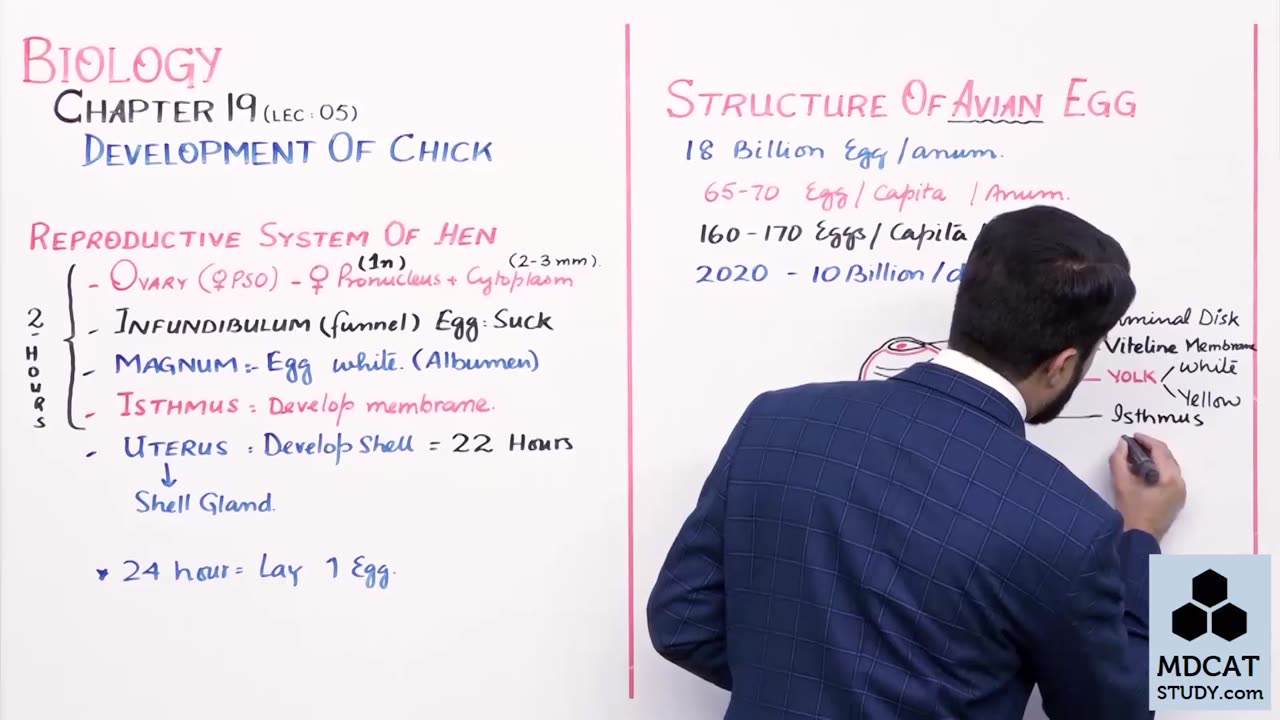 BIOLOGY
CHAPTER 19 (LEC: 05)
DEVELOPMENT OF CHICK
REPRODUCTIVE SYSTEM OF HEN
2-HOURS
- OVARY (♀PSO) - ♀ Pronucleus + Cytoplasm
(1n)
(2-3 mm).
- INFUNDIBULUM (funnel) Egg: Suck
- MAGNUM:- Egg white. (Albumen)
- ISTHMUS: Develop membrane.
- UTERUS : Develop Shell = 22 Hours
↓
Shell Gland.
* 24 hour = Lay 1 Egg.
STRUCTURE OF AVIAN EGG
18 Billion Egg /anum.
65-70 Egg / Capita / Anum.
160-170 Eggs / Capita
2020 - 10 Billion /
Disk
Viteline Membrane
YOLK
White
Yellow
Isthmus
MDCAT
STUDY.com